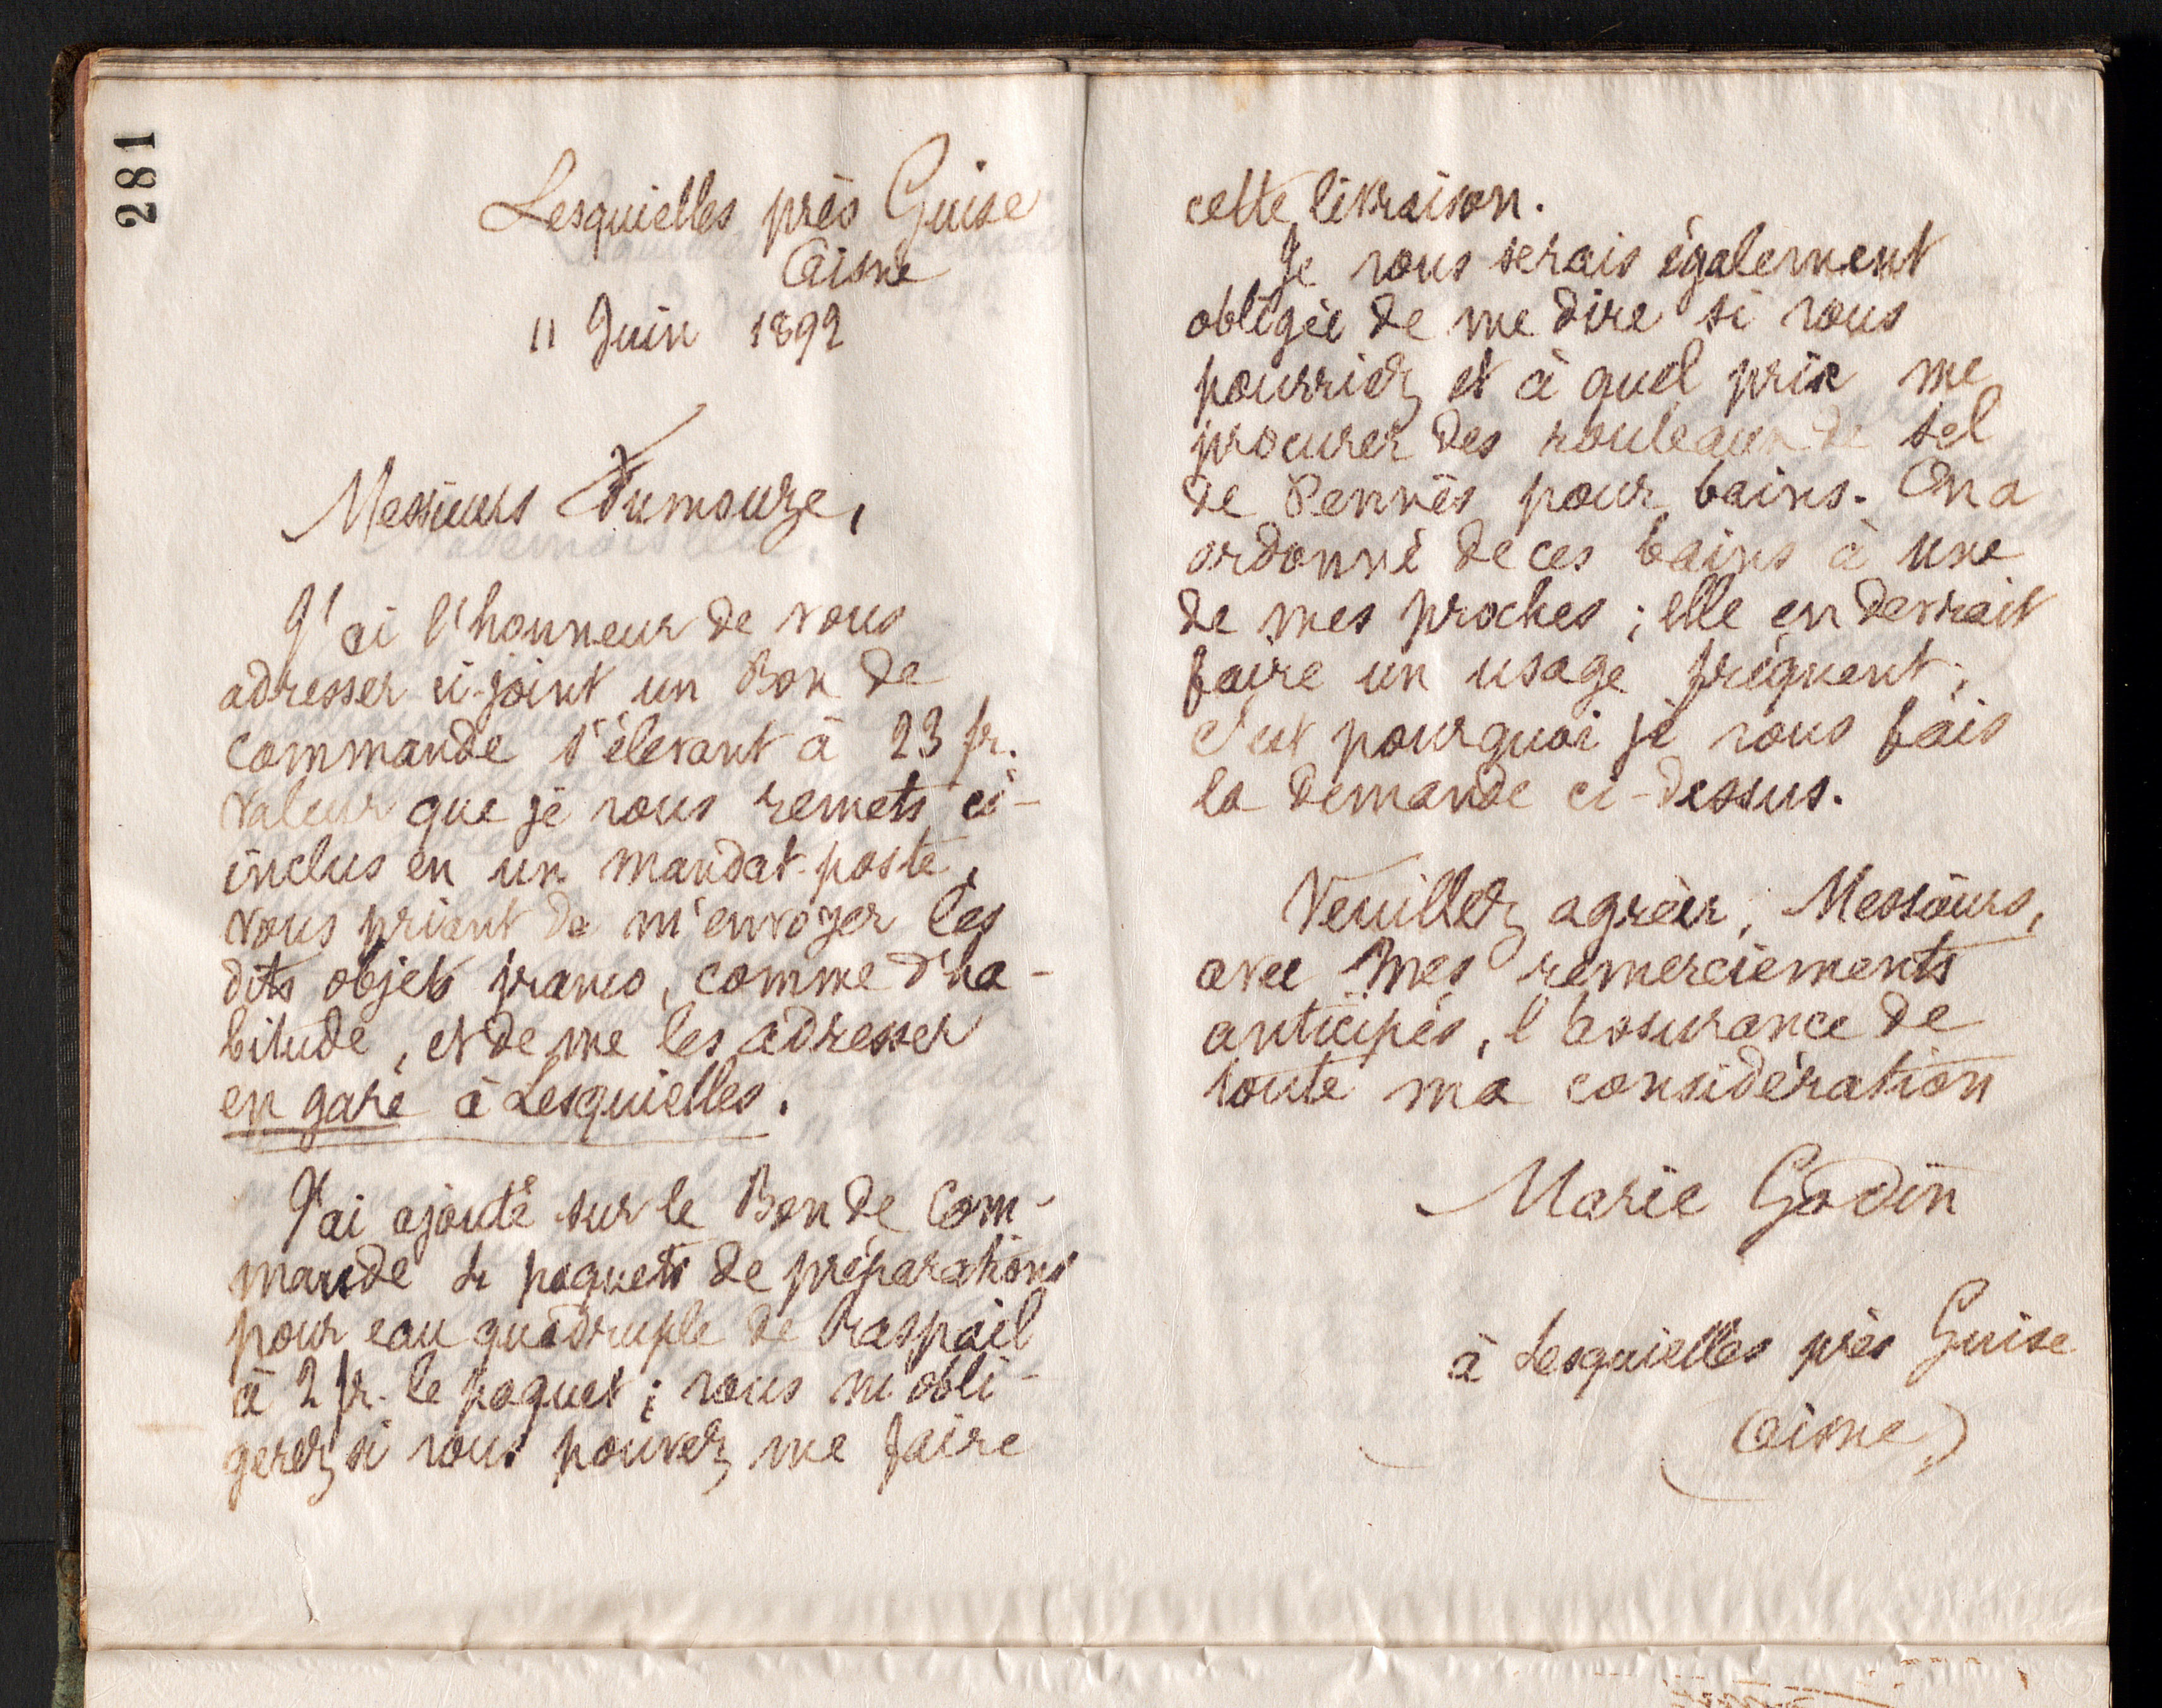 281
Lesquielles près Guise
Aisne
11 Juin 1892
Messieurs Fumouze,
J'ai l'honneur de vous
adresser ci-joint un Bon de
commande s'élevant à 23 fr.
valeur que je vous remets ci-
inclus en un mandat-poste,
vous priant de m'envoyer les
dits objets franco, comme d'ha-
bitude, et de me les adresser
en gare à Lesquielles.
J'ai ajouté sur le Bon de Com-
mande 4 paquets de préparations
pour eau quadruple de Raspail
à 2 fr. le paquet ; vous m'obli-
gerez si vous pouvez me faire
cette livraison.
Je vous serais également
obligée de me dire si vous
pourriez et à quel prix me
procurer des rouleaux de sel
de Pennès pour bains. On a
ordonné de ces bains à une
de mes proches ; elle en devrait
faire un usage fréquent ;
c'est pourquoi je vous fais
la demande ci-dessus.
Veuillez agréer, Messieurs,
avec mes remerciements
anticipés, l'assurance de
toute ma considération
Marie Godin
à Lesquielles près Guise
(Aisne)